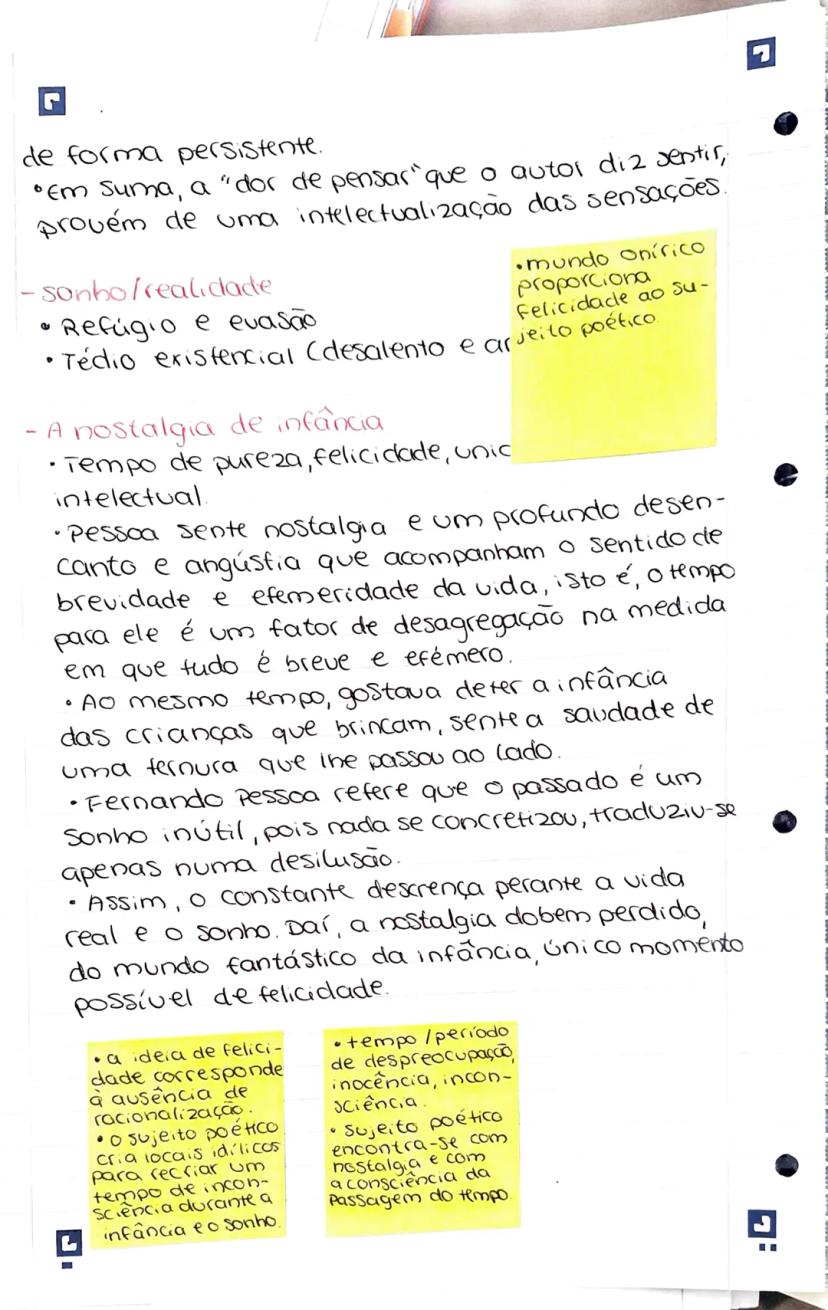 de forma persistente.
•Em suma, a "dor de pensar" que o autor diz sentir,
provém de uma intelectualização das sensações.
- sonho/realidade
• Refúgio e evasão
• Tédio existencial (desalento e
•mundo onírico
proporciona
felicidade ao su-
jeito poético.
- A nostalgia de infância
• Tempo de pureza, felicidade,
intelectual.
• Pessoa sente nostalgia e um profundo desen-
canto e angústia que acompanham o sentido de
brevidade e efemeridade da vida, isto é, o tempo
para ele é um fator de desagregação na medida
em que tudo é breve e efémero.
• Ao mesmo tempo, gostava de ter a infância
das crianças que brincam, sente a saudade de
uma ternura que lhe passou ao lado.
• Fernando Pessoa refere que o passado é um
sonho inútil, pois nada se concretizou, traduziu-se
apenas numa desilusão.
• Assim, o constante descrença perante a vida
real e o sonho. Daí, a nostalgia do bem perdido,
do mundo fantástico da infância, único momento
possível de felicidade.
• a ideia de felici-
dade corresponde
à ausência de
racionalização.
• o sujeito poético
cria locais idílicos
para recriar um
tempo de incon-
sciência durante a
infância e o sonho.
• tempo / período
de despreocupação,
inocência, incon-
sciência.
• sujeito poético
encontra-se com
nostalgia e com
a consciência da
passagem do tempo.